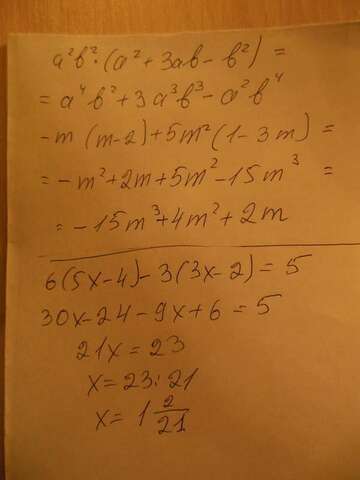 a²b²·(a²+3ab-b²)=
=a⁴b²+3a³b³-a²b⁴
-m(m-2)+5m²(1-3m)=
=-m²+2m+5m²-15m³=
=-15m³+4m²+2m
6(5x-4)-3(3x-2)=5
30x-24-9x+6=5
21x=23
x=23:21
x=1 2/21